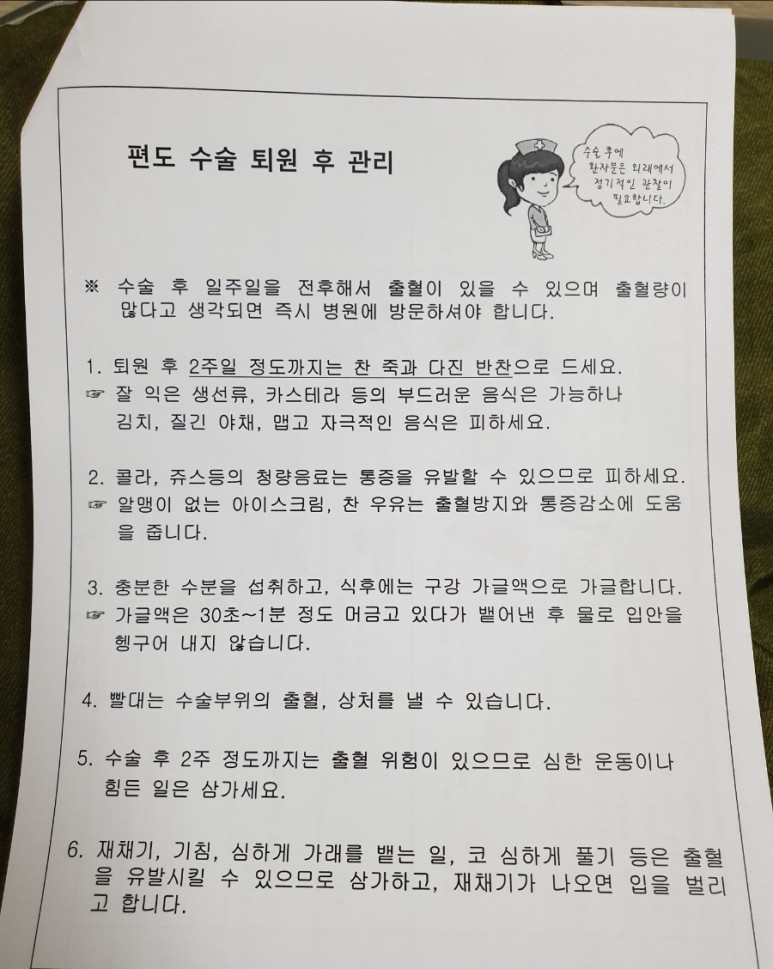 편도 수술 퇴원 후 관리
수술 후에
환자분은 외래에서
정기적인 관찰이
필요합니다.
※ 수술 후 일주일을 전후해서 출혈이 있을 수 있으며 출혈량이
많다고 생각되면 즉시 병원에 방문하셔야 합니다.
1. 퇴원 후 2주일 정도까지는 찬 죽과 다진 반찬으로 드세요.
☞ 잘 익은 생선류, 카스테라 등의 부드러운 음식은 가능하나
김치, 질긴 야채, 맵고 자극적인 음식은 피하세요.
2. 콜라, 쥬스등의 청량음료는 통증을 유발할 수 있으므로 피하세요.
☞ 알맹이 없는 아이스크림, 찬 우유는 출혈방지와 통증감소에 도움
을 줍니다.
3. 충분한 수분을 섭취하고, 식후에는 구강 가글액으로 가글합니다.
☞ 가글액은 30초~1분 정도 머금고 있다가 뱉어낸 후 물로 입안을
헹구어 내지 않습니다.
4. 빨대는 수술부위의 출혈, 상처를 낼 수 있습니다.
5. 수술 후 2주 정도까지는 출혈 위험이 있으므로 심한 운동이나
힘든 일은 삼가세요.
6. 재채기, 기침, 심하게 가래를 뱉는 일, 코 심하게 풀기 등은 출혈
을 유발시킬 수 있으므로 삼가하고, 재채기가 나오면 입을 벌리
고 합니다.